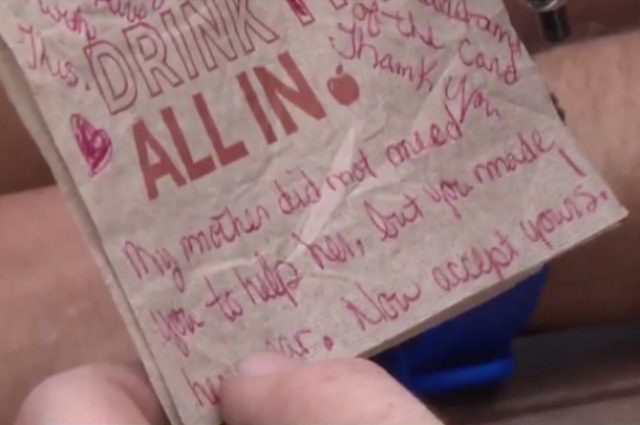 with
This.
DRINK IT
ALL IN.
of the card
Thank you
My mother did not need
you to help her, but you made
her Now accept yours.